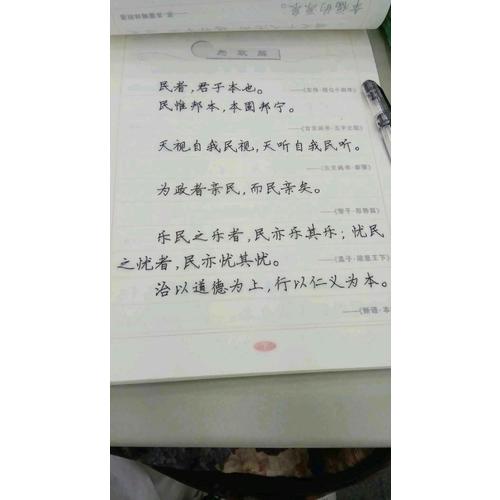 幸福的源泉。
为政篇
民者，君子本也。
民惟邦本，本固邦宁。
——《古文尚书·五子之歌》
天视自我民视，天听自我民听。
——《古文尚书·泰誓》
为政者亲民，而民亲矣。
——《管子·形势篇》
乐民之乐者，民亦乐其乐；忧民
之忧者，民亦忧其忧。
——《孟子·梁惠王下》
治以道德为上，行以仁义为本。
——《新语·本